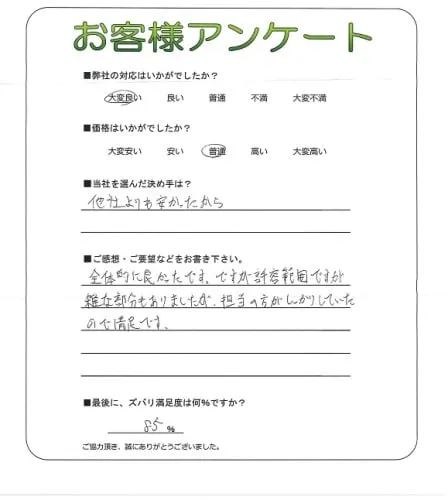 お客様アンケート
■弊社の対応はいかがでしたか?
大変良い 良い 普通 不満 大変不満
■価格はいかがでしたか?
大変安い 安い 普通 高い 大変高い
■当社を選んだ決め手は?
他社よりも安かったから
■ご感想・ご要望などをお書き下さい。
全体的に良かったです。ですが許容範囲ですが
雑な部分もありましたが、担当の方がしっかりしていた
ので満足です。
■最後に、ズバリ満足度は何%ですか?
85 %
ご協力頂き、誠にありがとうございました。